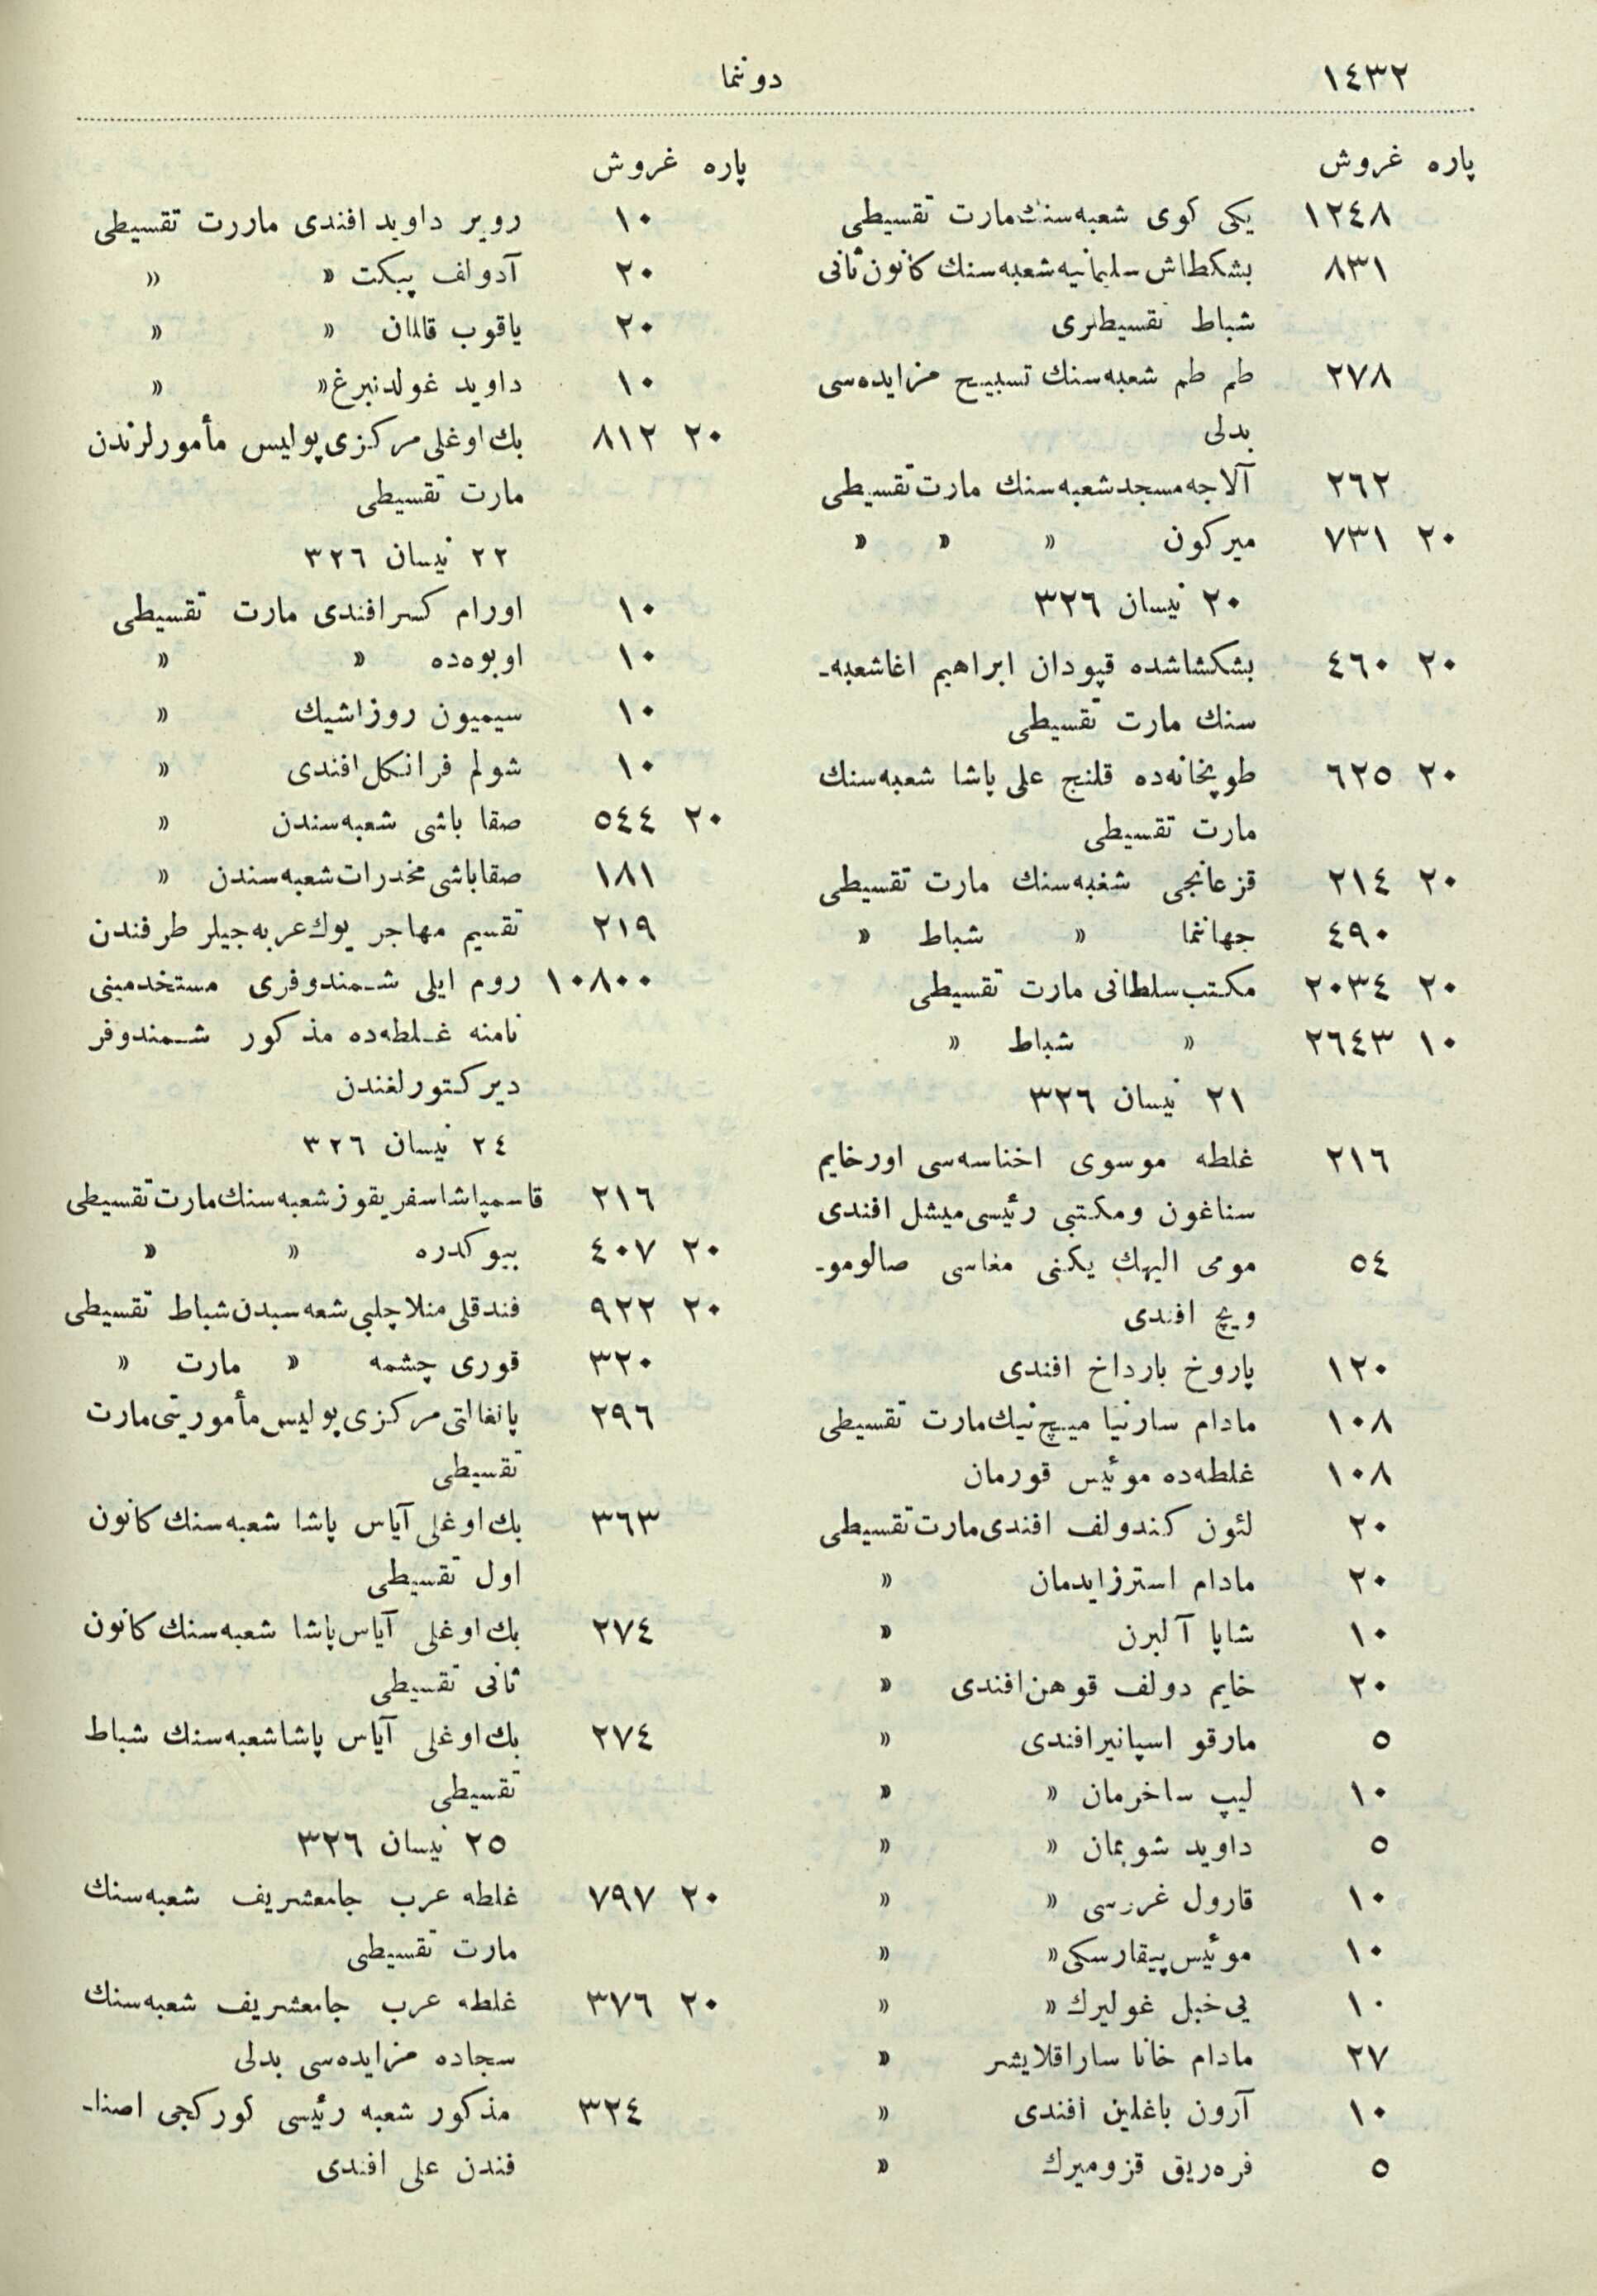 ١٤٣٢ دوننما
پاره غروش
١٢٤٨ یکی کوی شعبه‌سنك مارت تقسیطی
٨٣١ بشکطاش سلیمانیه شعبه‌سنك کانون ثانی
شباط تقسیطلری
٢٧٨ طم طم شعبه‌سنك تسبیح مزایده‌سی
بدلی
٢٦٢ آلاجه مسجد شعبه‌سنك مارت تقسیطی
٢٠ ٧٣١ میرکون » » »
٢٠ نیسان ٣٢٦
٢٠ ٤٦٠ بشکشاشده قپودان ابراهیم اغا شعبه‌ـ
سنك مارت تقسیطی
٢٠ ٦٢٥ طوپخانه‌ده قلنج علی پاشا شعبه‌سنك
مارت تقسیطی
٢٠ ٢١٤ قزعانجی شغبه‌سنك مارت تقسیطی
٤٩٠ جهاننما » شباط »
٢٠ ٢٠٣٤ مکتب سلطانی مارت تقسیطی
١٠ ٢٦٤٣ » شباط »
٢١ نیسان ٣٢٦
٢١٦ غلطه موسوی اخناسه‌سی اورخایم
سناغون ومکتبی رئیسی میشل افندی
٥٤ مومی الیهك یکنی مغاسی صالوموـ
ویچ افندی
١٢٠ پاروخ بارداخ افندی
١٠٨ مادام سارنیا میچ نیك مارت تقسیطی
١٠٨ غلطه‌ده موئیس قورمان
٢٠ لئون کندولف افندی مارت تقسیطی
٢٠ مادام استرزایدمان »
١٠ شاپا آلبرن »
٢٠ خایم دولف قوهن افندی »
٥ مارقو اسپانیر افندی »
١٠ لیپ ساخرمان » »
٥ داوید شویمان » »
١٠ قارول غررسی » »
١٠ موئیس پیقارسکی » »
١٠ یی‌خبل غولیرك » »
٢٧ مادام خانا ساراقلایشر »
١٠ آرون باغلین افندی »
٥ فره‌ریق قزومیرك »
پاره غروش
١٠ روبر داوید افندی ماررت تقسیطی
٢٠ آدولف پیکت » »
٢٠ یاقوب قالمان » »
١٠ داوید غولدنبرغ » »
٢٠ ٨١٢ بك اوغلی مرکزی پولیس مأمورلرندن
مارت تقسیطی
٢٢ نیسان ٣٢٦
١٠ اورام کسر افندی مارت تقسیطی
١٠ اوبوه‌ده » »
١٠ سیمیون روزاشیك »
١٠ شولم فرانکل افندی »
٢٠ ٥٤٤ صقا باشی شعبه‌سندن »
١٨١ صقاباشی مخدرات شعبه‌سندن »
٢١٩ تقسیم مهاجر یوك عربه‌جیلر طرفندن
١٠٨٠٠ روم ایلی شمندوفری مستخدمینی
نامنه غلطه‌ده مذکور شمندوفر
دیرکتورلغندن
٢٤ نیسان ٣٢٦
٢١٦ قاسمپاشا سفریقوز شعبه‌سنك مارت تقسیطی
٢٠ ٤٠٧ بیوکدره » »
٢٠ ٩٢٢ فندقلی منلا چلبی شعه سبدن شباط تقسیطی
٣٢٠ قوری چشمه » مارت »
٢٩٦ پانغالتی مرکزی پولیس مأموریتی مارت
تقسیطی
٣٦٣ بك اوغلی آیاس پاشا شعبه‌سنك کانون
اول تقسیطی
٢٧٤ بك اوغلی آیاس پاشا شعبه‌سنك کانون
ثانی تقسیطی
٢٧٤ بك اوغلی آیاس پاشا شعبه‌سنك شباط
تقسیطی
٢٥ نیسان ٣٢٦
٢٠ ٧٩٧ غلطه عرب جامعشریف شعبه‌سنك
مارت تقسیطی
٢٠ ٣٧٦ غلطه عرب جامعشریف شعبه‌سنك
سجاده مزایده‌سی بدلی
٣٢٤ مذکور شعبه رئیسی کورکجی اصناـ
فندن علی افندی